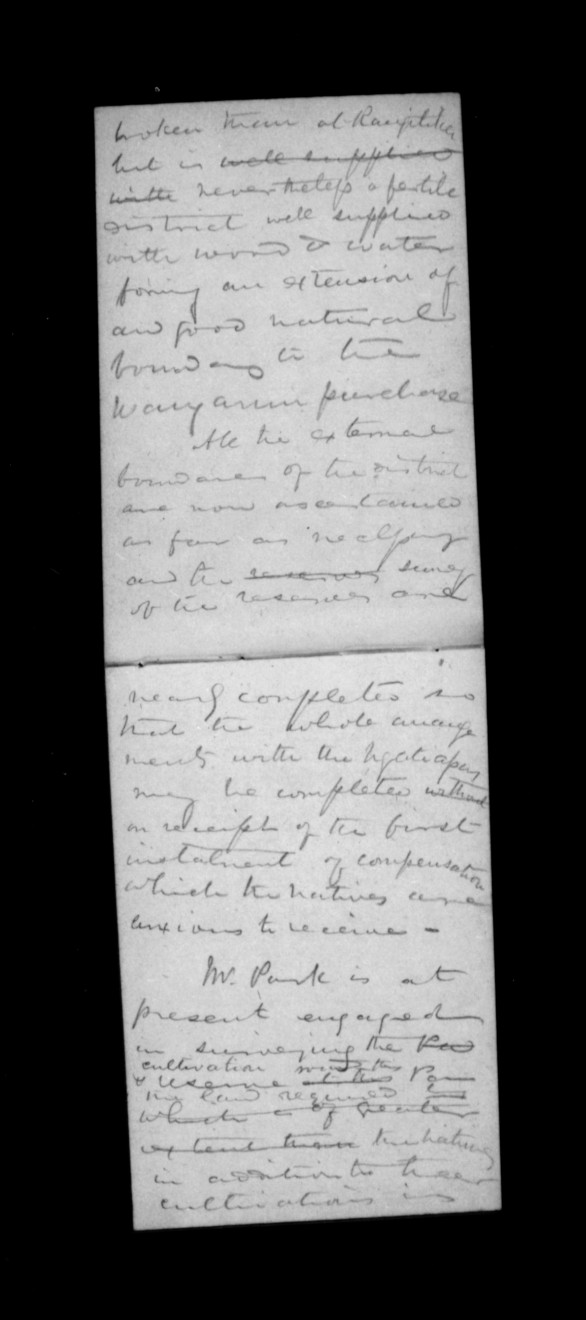 broken than at Rangitikei
but is well supplied
with nevertheless a fertile
district well supplied
with wood & water
foming an extension of
and good natural
boundary to the
Wanganui purchase
All the external
boundaries of the district
are now ascertained
as far as
and the reserves survey
of the reserves are
nearly completed so
that the whole arrange
ments with the Ngatiapas
may be completed without
on receipt of the first
instalment of compensation
which the natives are
anxious to receive -
Mr. Park is at
present engaged
in surveying the
cultivation
& reserve at this Pa
the land required
which is of greater
extent than the natives
in addition to their
cultivations is